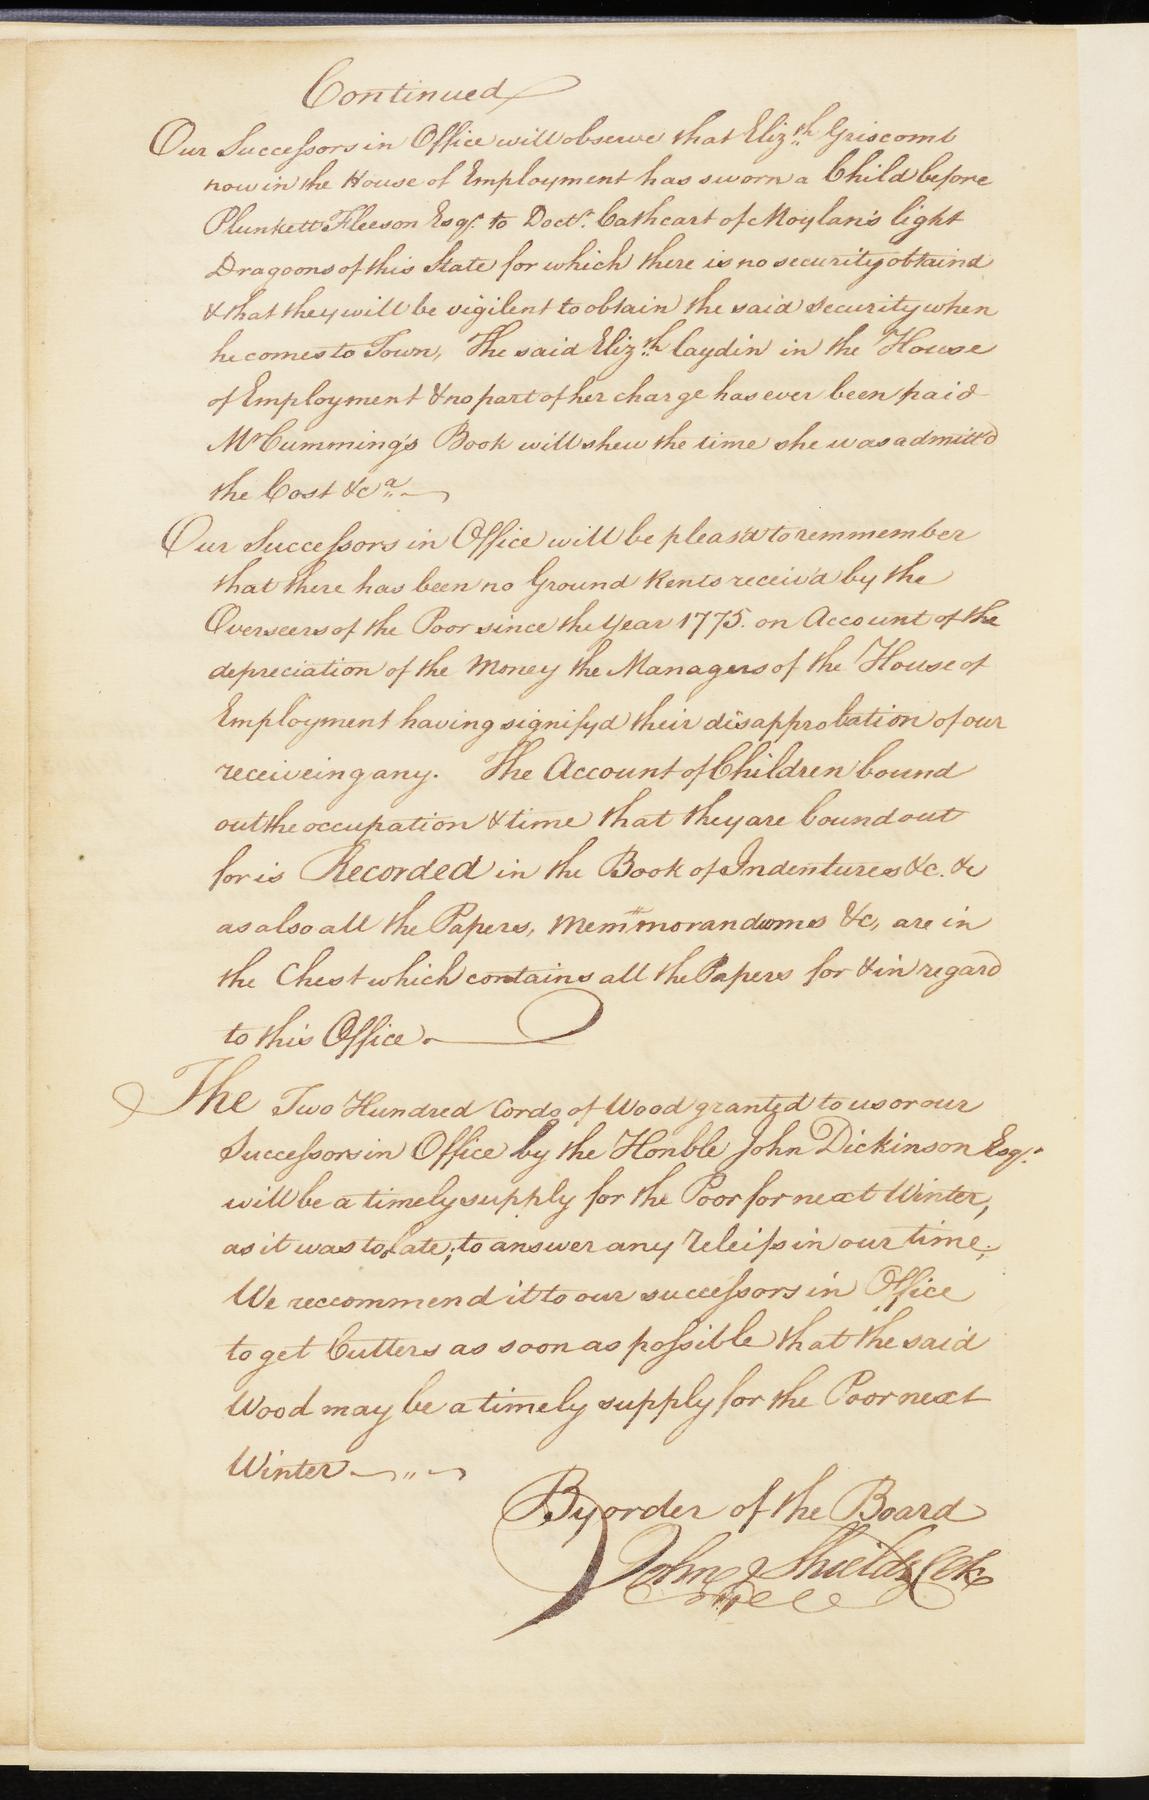 Continued
Our Successors in Office will observe that Elizth Griscomb
now in the House of Employment has sworn a Child before
Plunkett Fleeson Esqr. to Doctr. Cathcart of Moylan's light
Dragoons of this State for which there is no security obtaind
& that they will be vigilent to obtain the said security when
he comes to Town, The said Elizth laydin in the House
of Employment & no part of her charge has ever been paid
Mr Cumming's Book will shew the time she was admitt'd
the Cost &ca
Our Successors in Office will be pleas'd to remmember
that there has been no Ground Rents receiv'd by the
Overseers of the Poor since the Year 1775. on Account of the
depreciation of the Money the Managers of the House of
Employment having signifyd their disapprobation of our
receiveing any. The Account of Children bound
out the occupation & time that they are bound out
for is Recorded in the Book of Indentures &c. &c
as also all the Papers, Memmorandoms &c, are in
the Chest which contains all the Papers for & in regard
to this Office.
The Two Hundred Cords of Wood granted to us or our
Successors in Office by the Honble John Dickinson Esqr.
will be a timely supply for the Poor for next Winter,
as it was to late; to answer any Releif in our time;
We reccommend it to our successors in Office
to get Cutters as soon as possible that the said
Wood may be a timely supply for the Poor next
Winter
By order of the Board
John Shields Clk